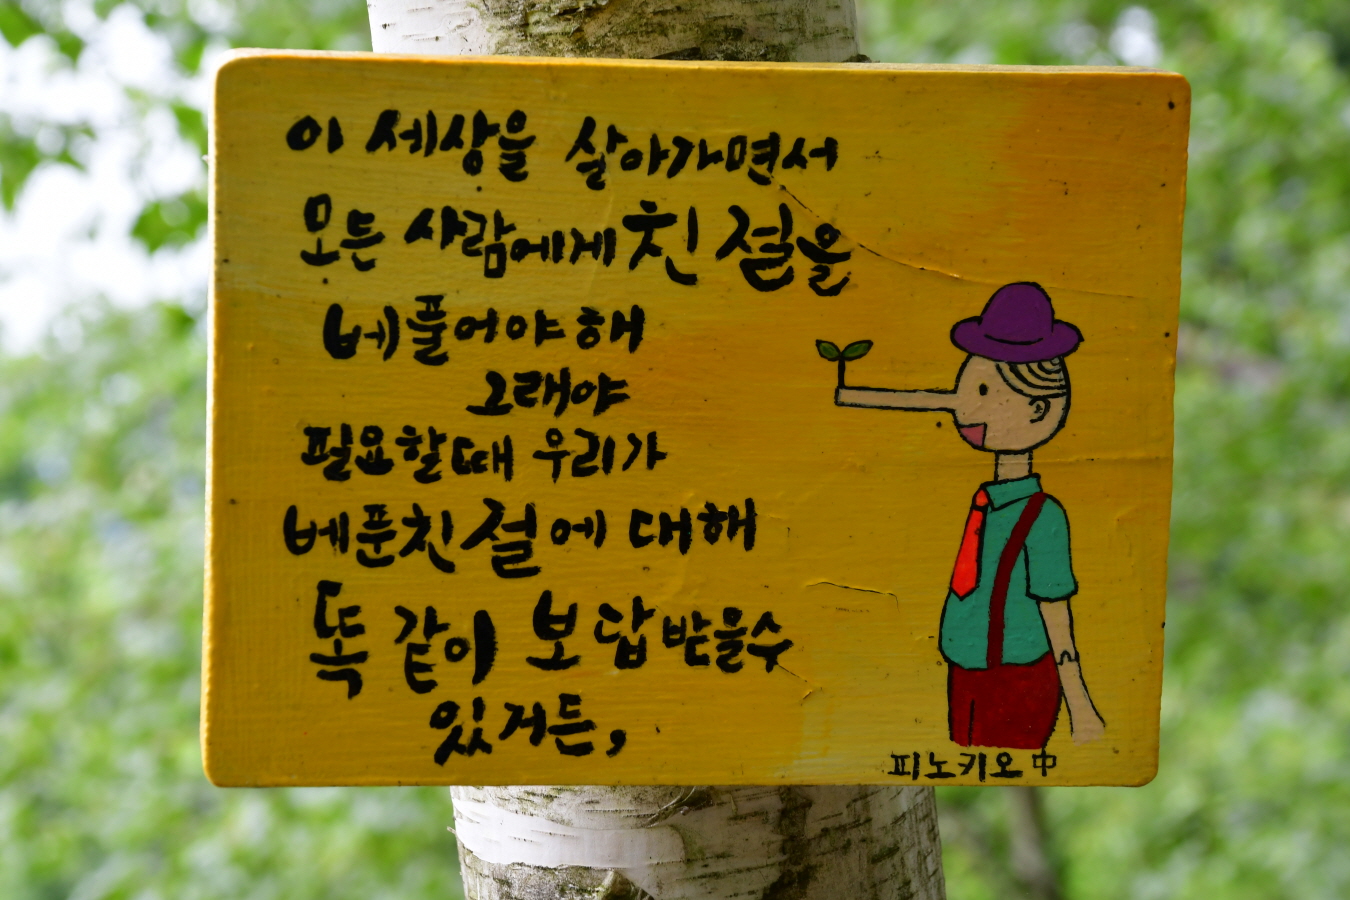 이 세상을 살아가면서
모든 사람에게 친절을
베풀어야해
그래야
필요할때 우리가
베푼친절에 대해
똑같이 보답받을수
있거든,
피노키오中